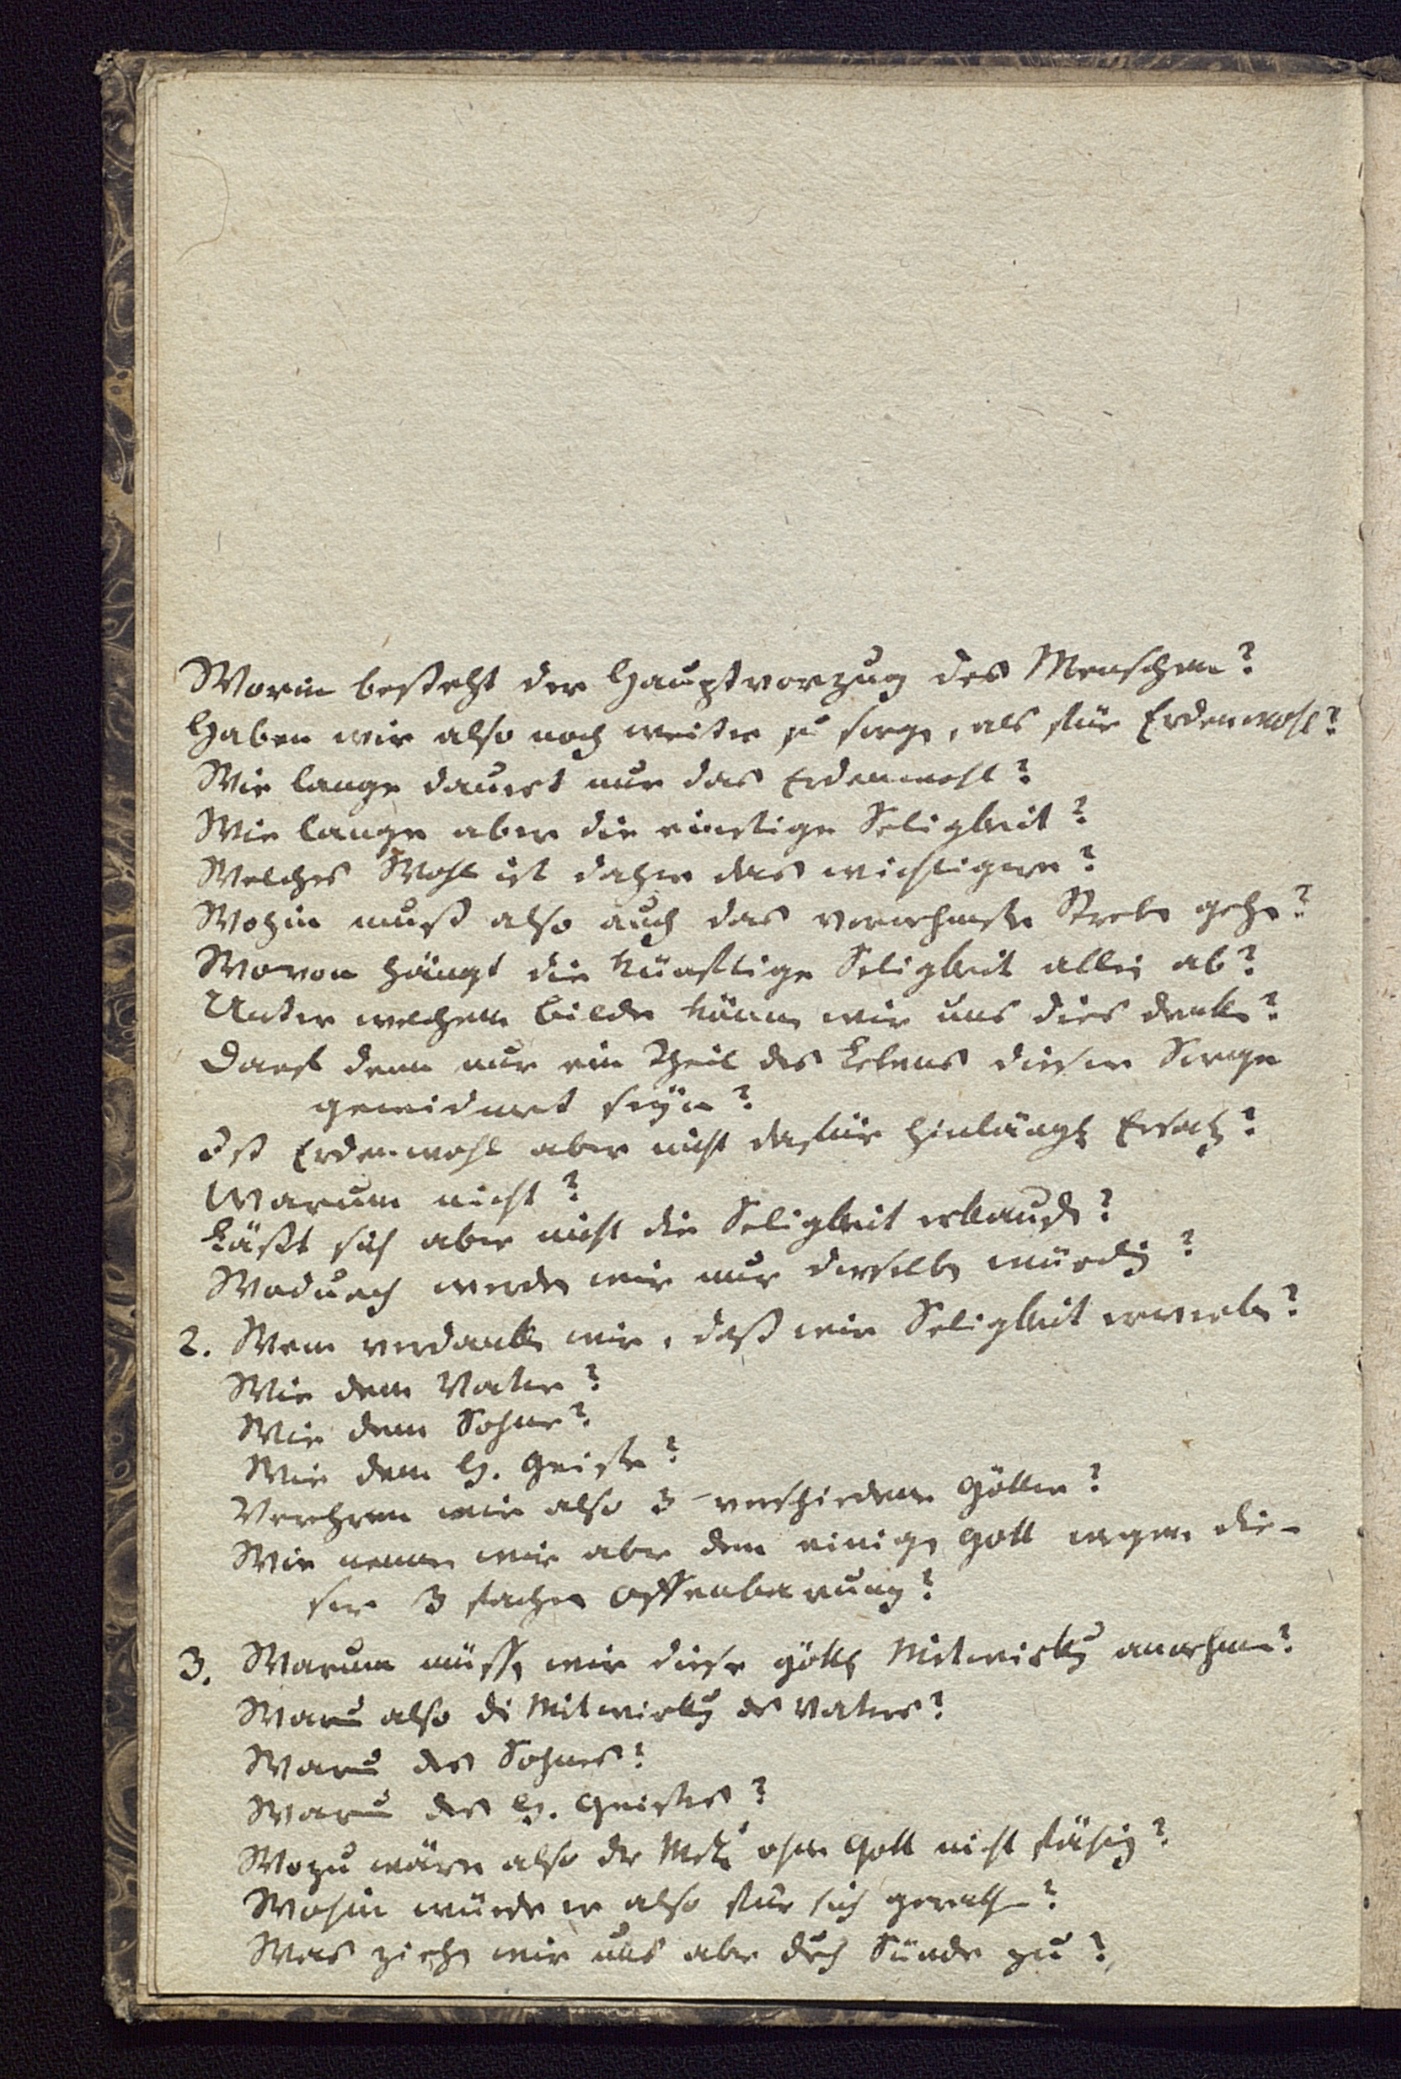 Worin besteht der Hauptvorzug des Menschen?
Haben wir also noch weiter zu sorgen, als für Erdenwohl?
Wie lange dauert nur das Erdenwohl?
Wie lange aber die einstige Seligkeit?
Welches Wohl ist daher das wichtigere?
Wohin muß also auch das vornehmste Streben gehen?
Wovon hängt die künftige Seligkeit allein ab?
Unter welchem Bilde können wir uns dies denken?
Darf denn nur ein Theil des Lebens dieser Sorge
gewidmet seyn?
Ist Erdenwohl aber nicht dafür hinlängl Ersatz?
Warum nicht?
Läßt sich aber nicht die Seligkeit erkaufen?
Wodurch werden wir nur derselben würdig?
2. Wem verdanken wir, daß wir Seligkeit erwerben?
Wie dem Vater?
Wie dem Sohne?
Wie dem H. Geiste?
Verehren wir also 3 verschiedene Götter?
Wie nennen wir aber den einigen Gott wegen die-
ser 3 fachen Offenbarung?
3. Warum müssen wir diese göttl Mitwirkg annehmen?
Waru̅ also di Mitwirkg des Vaters?
Waru̅ des Sohnes?
Waru̅ des H. Geistes?
Wozu wäre also der ohne Gott nicht fähig?
Wohin würde er also für sich gerathen?
Was ziehen wir uns aber durch Sünde zu?